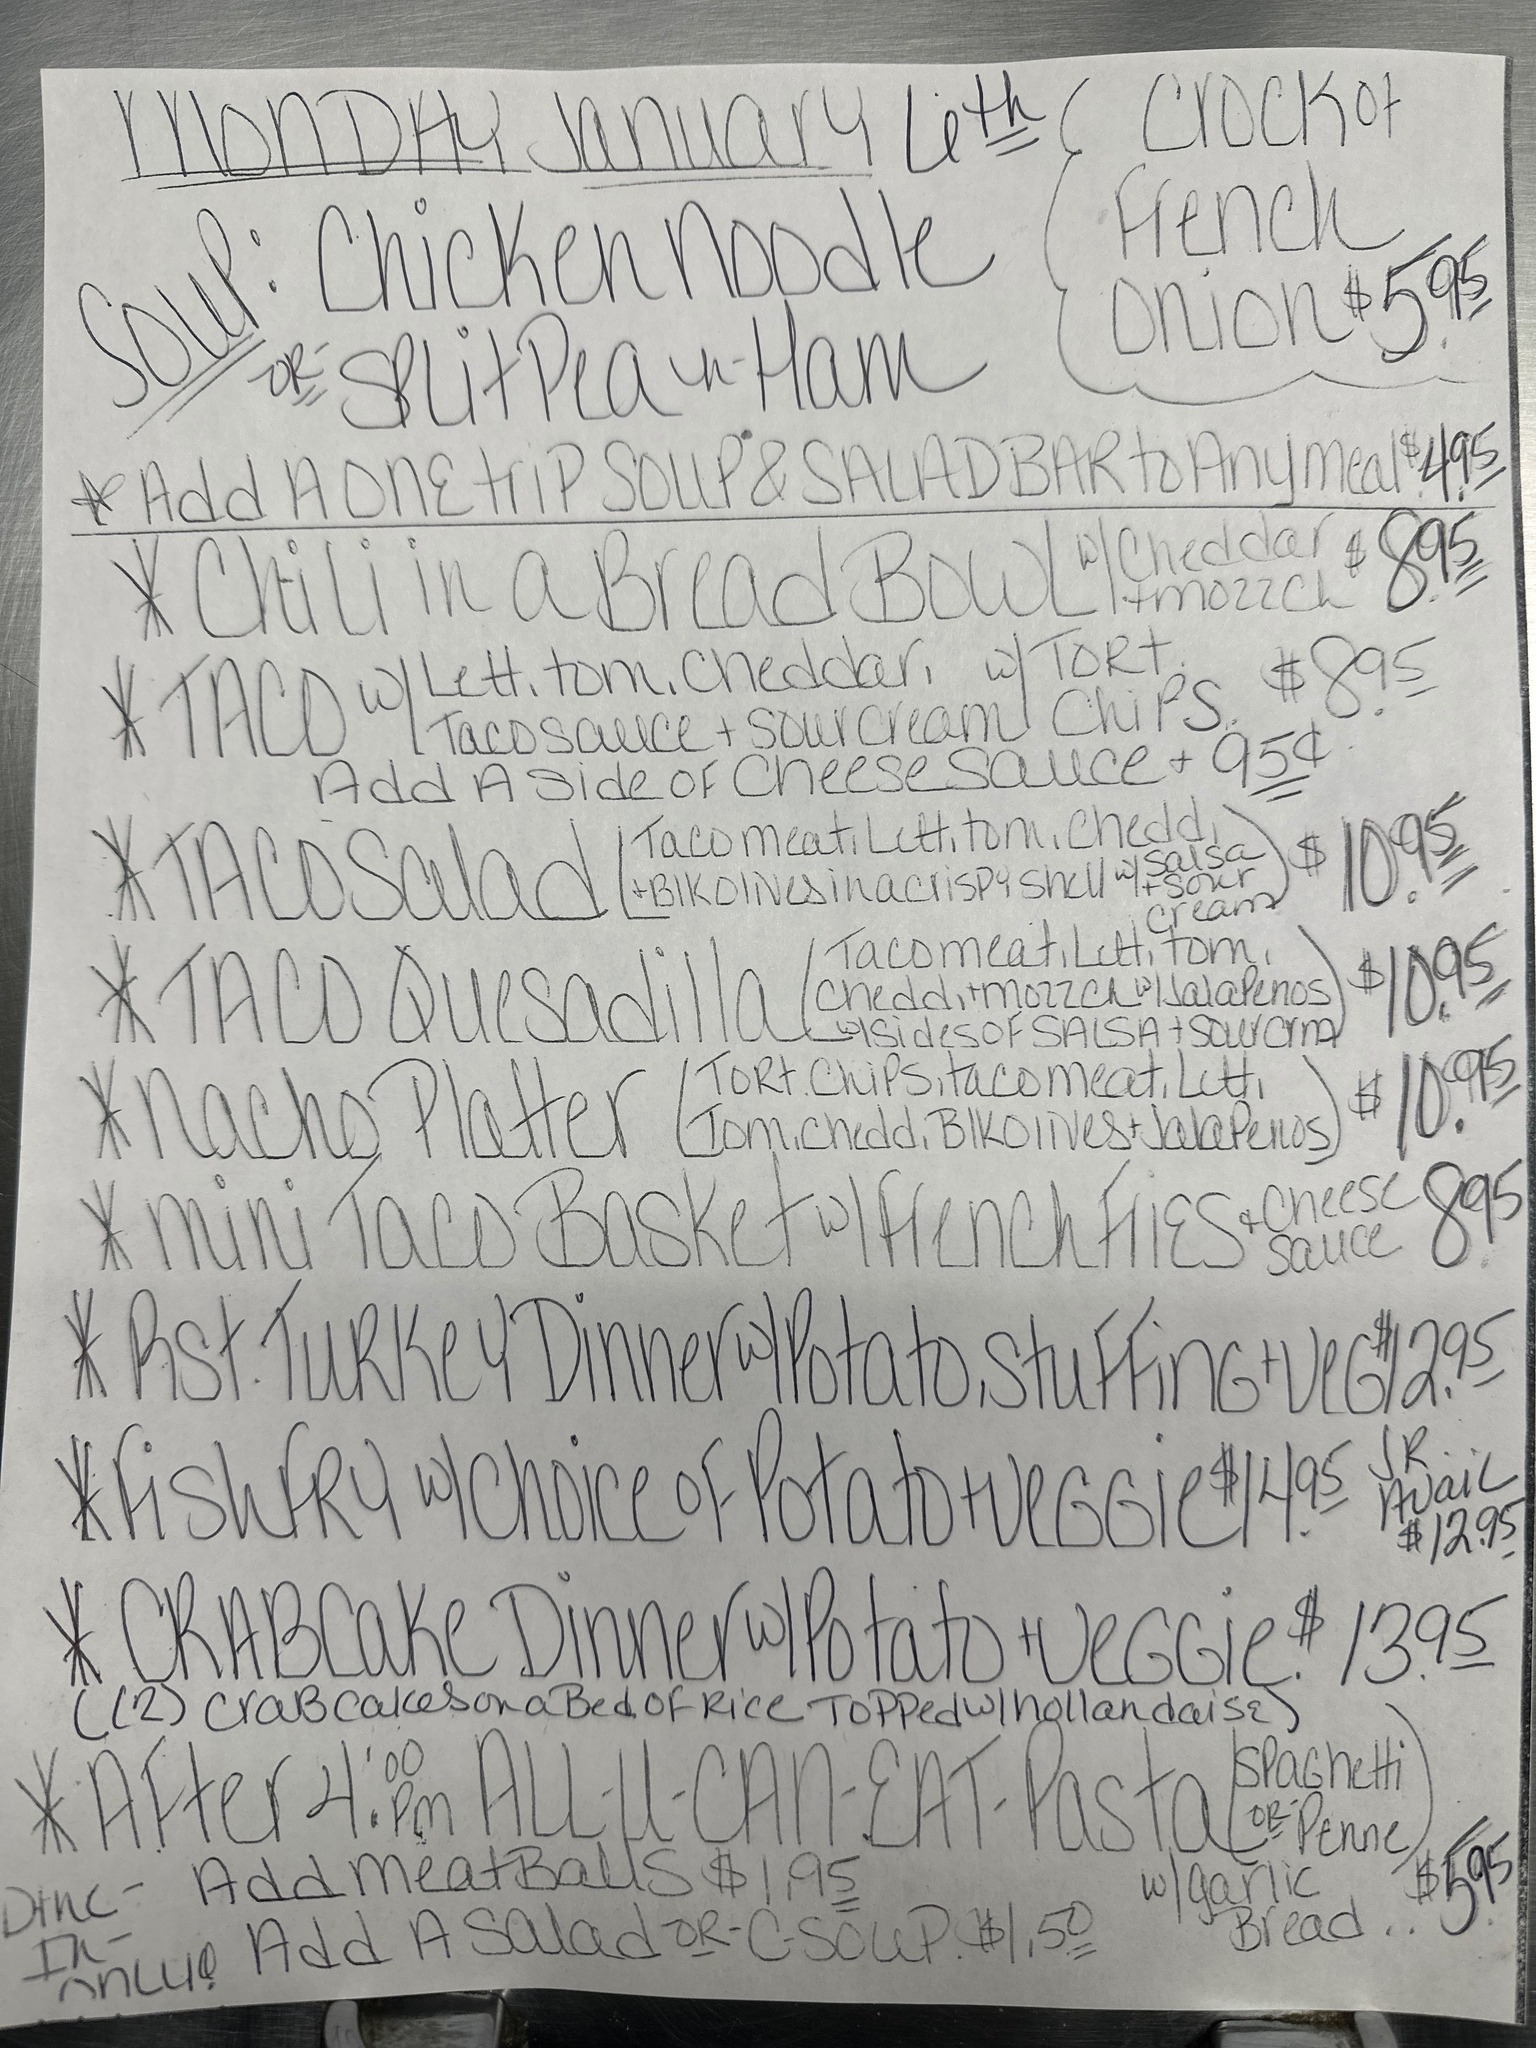 Monday January 6th
Soup: Chicken Noodle
-OR- Split Pea -n- Ham
Crock of
French
Onion $5.95
* Add A One trip Soup & SALAD BAR to Any meal $4.95
* Chili in a Bread Bowl w/ Cheddar + mozz ch $8.95
* TACO w/ Lett, tom, cheddar, w/ Tort. $8.95
Taco sauce + sour cream Chips.
Add A side of Cheese sauce + 95¢
* TACO Salad (Taco meat, Lett, tom, chedd, $10.95
+ Blk olives in a crispy shell w/ salsa + sour cream)
* TACO Quesadilla (Taco meat, Lett, tom, $10.95
chedd, + mozz ch w/ Jalapenos
w/ sides of SALSA + sour crm)
* Nacho Platter (Tort. Chips, taco meat, Lett, $10.95
Tom, chedd, Blk olives + Jalapenos)
* mini Taco Basket w/ French Fries + cheese sauce 8.95
* Rst. Turkey Dinner w/ Potato, stuffing + veg $12.95
* Fish Fry w/ choice of Potato + veggie $14.95 JR Avail $12.95
* CRAB Cake Dinner w/ Potato + veggie. $13.95
((2) crab cakes on a Bed of Rice Topped w/ hollandaise)
* After 4:00 Pm ALL-U-CAN-EAT-Pasta (spaghetti -OR- Penne)
w/ garlic Bread .. $5.95
Dine-In-only! Add meatBalls $1.95
Add A Salad -OR- C-Soup. $1.50